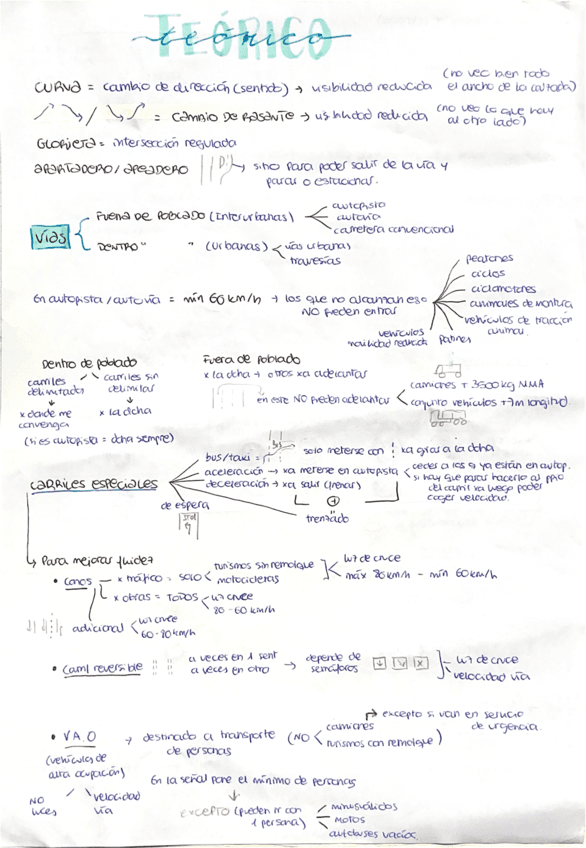 TEÓRICO
teórico
CURVA = cambio de dirección (sentido) → visibilidad reducida (no veo bien todo el ancho de la calzada)
= CAMBIO DE RASANTE → visibilidad reducida (no veo lo que hay al otro lado)
GLORIETA = intersección regulada
APARTADERO/APEADERO → sitio para poder salir de la vía y parar o estacionar.
Vías
FUERA DE POBLADO (interurbanas)
autopista
autovía
carretera convencional
DENTRO " " (urbanas)
vías urbanas
travesías
En autopista/autovía = mín 60 km/h → los que no alcanzan eso NO pueden entrar
peatones
ciclos
ciclomotores
animales de montura
vehículos de tracción animal.
patines
vehículos movilidad reducida
Dentro de poblado
carriles delimitados
x donde me convenga
carriles sin delimitar
x la dcha
(si es autopista = dcha siempre)
Fuera de poblado
x la dcha → otros xa adelantar
en este NO pueden adelantar
camiones + 3500 kg MMA
conjunto vehículos +7m longitud
CARRILES ESPECIALES
bus/taxi = solo meterse con xa giro a la dcha
aceleración → xa meterse en autopista
ceder a los q ya están en autop.
si hay que parar hacerlo al ppio del carril xa luego poder coger velocidad.
deceleración → xa salir (frenar)
trenzado
de espera
STOP
Para mejorar fluidez
• Conos
x tráfico = SOLO
turismos sin remolque
motocicletas
luz de cruce
máx 80 km/h - mín 60 km/h
x obras = TODOS
luz cruce
80 - 60 km/h
adicional
luz cruce
60-80 km/h
• Carril reversible
a veces en 1 sent
a veces en otro
→ depende de semáforos
luz de cruce
velocidad vía
• V.A.O → destinado a transporte de personas
(NO
camiones
turismos con remolque)
excepto si van en servicio de urgencia.
(vehículos de alta ocupación)
NO luces
velocidad vía
En la señal pone el mínimo de personas
EXCEPTO (pueden ir con 1 persona)
minusválidos
motos
autobuses vacíos